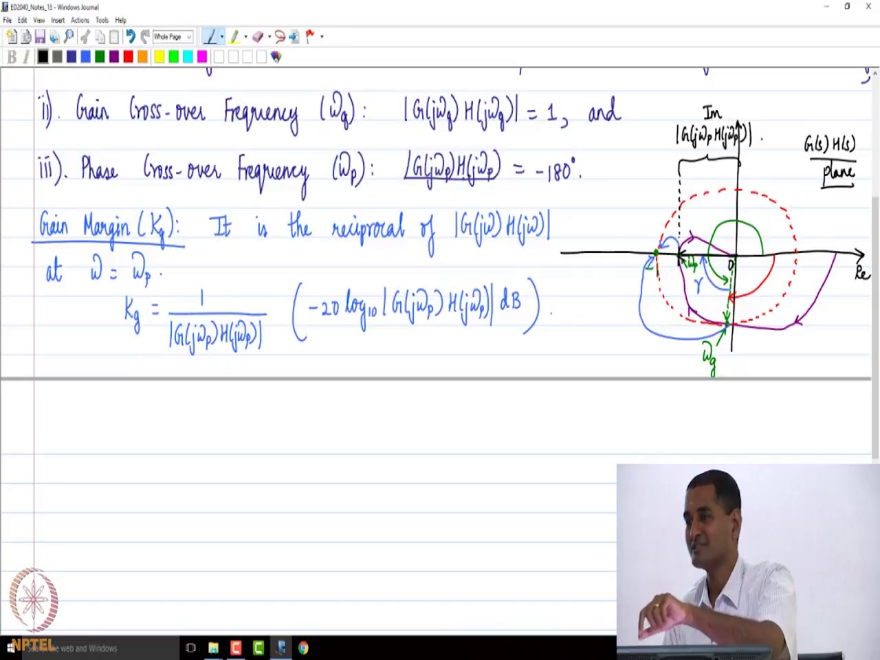 ED2040_Notes_13 - Windows Journal
File Edit View Insert Actions Tools Help
Whole Page
B I
ii). Gain Cross-over Frequency (ωg): |G(jωg) H(jωg)| = 1, and
iii). Phase Cross-over Frequency (ωp): ∠G(jωp)H(jωp) = -180°.
Gain Margin (Kg): It is the reciprocal of |G(jω) H(jω)|
at ω = ωp.
Kg = 1 / |G(jωp)H(jωp)| (-20 log10 |G(jωp) H(jωp)| dB).
Im
|G(jωp H(jωp)|.
G(s) H(s)
plane
Re
ωp
0
γ
ωg
NPTEL
the web and Windows